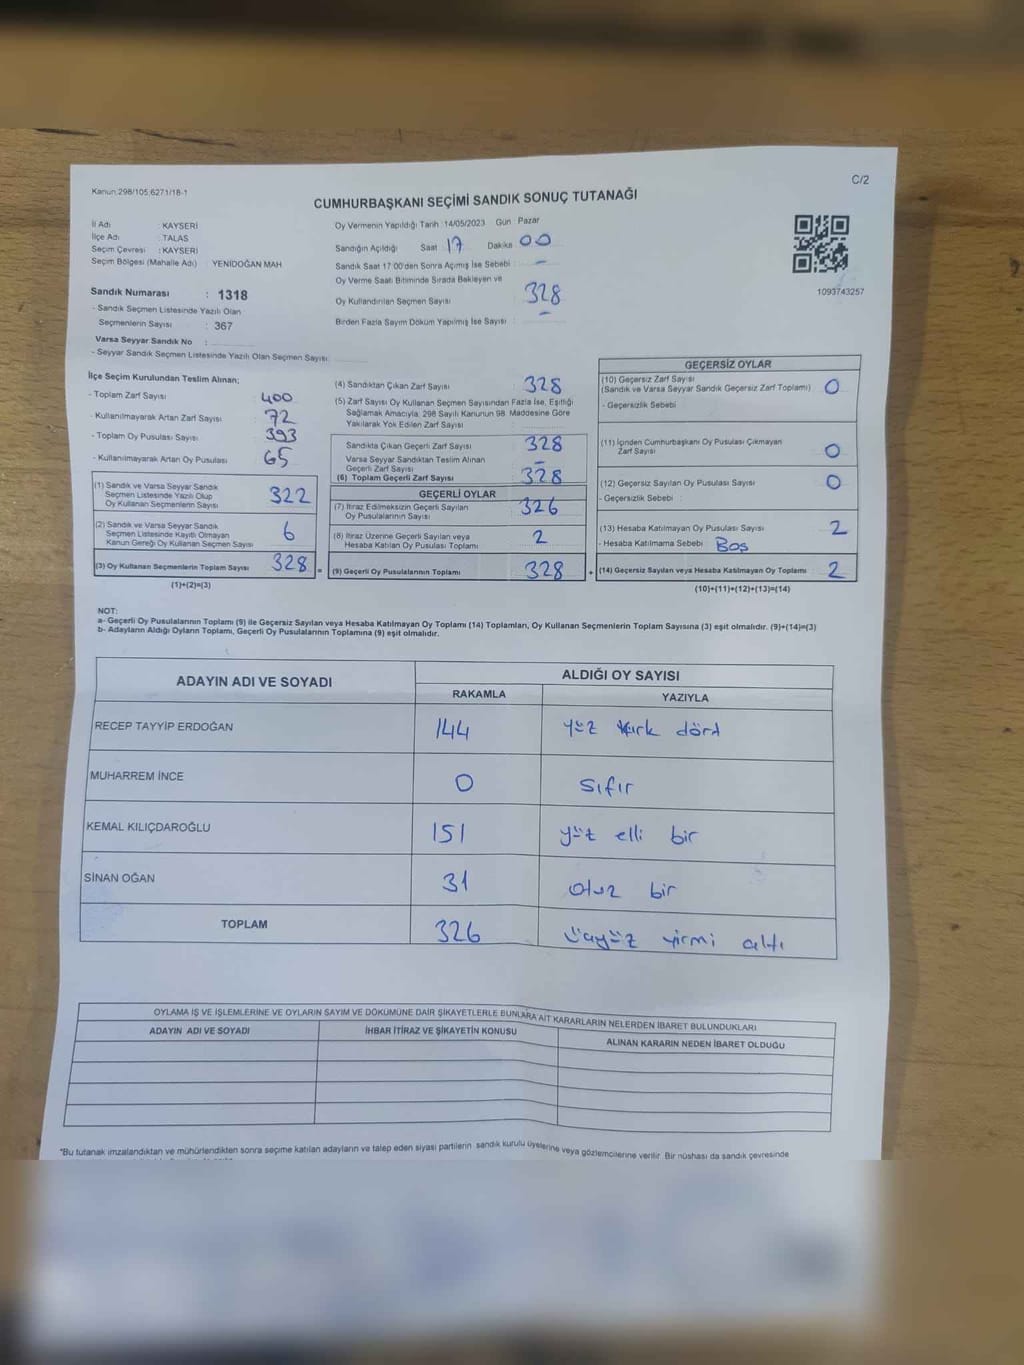 Kanun 298/105,6271/18-1
C/2
CUMHURBAŞKANI SEÇİMİ SANDIK SONUÇ TUTANAĞI
İl Adı : KAYSERİ
İlçe Adı : TALAS
Seçim Çevresi : KAYSERİ
Seçim Bölgesi (Mahalle Adı) : YENİDOĞAN MAH
Sandık Numarası : 1318
- Sandık Seçmen Listesinde Yazılı Olan
Seçmenlerin Sayısı : 367
Varsa Seyyar Sandık No :
- Seyyar Sandık Seçmen Listesinde Yazılı Olan Seçmen Sayısı:
Oy Vermenin Yapıldığı Tarih :14/05/2023 Gün : Pazar
Sandığın Açıldığı Saat 17 Dakika 00
Sandık Saat 17:00'den Sonra Açımış İse Sebebi : -
Oy Verme Saati Bitiminde Sırada Bekleyen ve
Oy Kullandırılan Seçmen Sayısı 328
Birden Fazla Sayım Döküm Yapılmış İse Sayısı : -
1093743257
İlçe Seçim Kurulundan Teslim Alınan;
- Toplam Zarf Sayısı : 400
- Kullanılmayarak Artan Zarf Sayısı : 72
- Toplam Oy Pusulası Sayısı : 393
- Kullanılmayarak Artan Oy Pusulası : 65
(1) Sandık ve Varsa Seyyar Sandık
Seçmen Listesinde Yazılı Olup
Oy Kullanan Seçmenlerin Sayısı 322
(2) Sandık ve Varsa Seyyar Sandık
Seçmen Listesinde Kayıtlı Olmayan
Kanun Gereği Oy Kullanan Seçmen Sayısı 6
(3) Oy Kullanan Seçmenlerin Toplam Sayısı 328 =
(1)+(2)=(3)
(4) Sandıktan Çıkan Zarf Sayısı : 328
(5) Zarf Sayısı Oy Kullanan Seçmen Sayısından Fazla İse, Eşitliği
Sağlamak Amacıyla, 298 Sayılı Kanunun 98. Maddesine Göre
Yakılarak Yok Edilen Zarf Sayısı :
Sandıkta Çıkan Geçerli Zarf Sayısı 328
Varsa Seyyar Sandıktan Teslim Alınan
Geçerli Zarf Sayısı -
(6) Toplam Geçerli Zarf Sayısı 328
GEÇERLİ OYLAR
(7) İtiraz Edilmeksizin Geçerli Sayılan
Oy Pusulalarının Sayısı 326
(8) İtiraz Üzerine Geçerli Sayılan veya
Hesaba Katılan Oy Pusulası Toplamı 2
(9) Geçerli Oy Pusulalarının Toplamı 328 +
GEÇERSİZ OYLAR
(10) Geçersiz Zarf Sayısı
(Sandık ve Varsa Seyyar Sandık Geçersiz Zarf Toplamı) 0
- Geçersizlik Sebebi
(11) İçinden Cumhurbaşkanı Oy Pusulası Çıkmayan
Zarf Sayısı 0
(12) Geçersiz Sayılan Oy Pusulası Sayısı 0
- Geçersizlik Sebebi :
(13) Hesaba Katılmayan Oy Pusulası Sayısı 2
- Hesaba Katılmama Sebebi : Boş
(14) Geçersiz Sayılan veya Hesaba Katılmayan Oy Toplamı 2
(10)+(11)+(12)+(13)=(14)
NOT:
a- Geçerli Oy Pusulasının Toplamı (9) ile Geçersiz Sayılan veya Hesaba Katılmayan Oy Toplamı (14) Toplamları, Oy Kullanan Seçmenlerin Toplam Sayısına (3) eşit olmalıdır. (9)+(14)=(3)
b- Adayların Aldığı Oyların Toplamı, Geçerli Oy Pusulalarının Toplamına (9) eşit olmalıdır.
ADAYIN ADI VE SOYADI ALDIĞI OY SAYISI
RAKAMLA YAZIYLA
RECEP TAYYİP ERDOĞAN 144 yüz kırk dört
MUHARREM İNCE 0 sıfır
KEMAL KILIÇDAROĞLU 151 yüz elli bir
SİNAN OĞAN 31 otuz bir
TOPLAM 326 üçyüz yirmi altı
OYLAMA İŞ VE İŞLEMLERİNE VE OYLARIN SAYIM VE DÖKÜMÜNE DAİR ŞİKAYETLERLE BUNLARA AİT KARARLARIN NELERDEN İBARET BULUNDUKLARI
ADAYIN ADI VE SOYADI İHBAR İTİRAZ VE ŞİKAYETİN KONUSU ALINAN KARARIN NEDEN İBARET OLDUĞU
*Bu tutanak imzalandıktan ve mühürlendikten sonra seçime katılan adayların ve talep eden siyasi partilerin sandık kurulu üyelerine veya gözlemcilerine verilir. Bir nüshası da sandık çevresinde